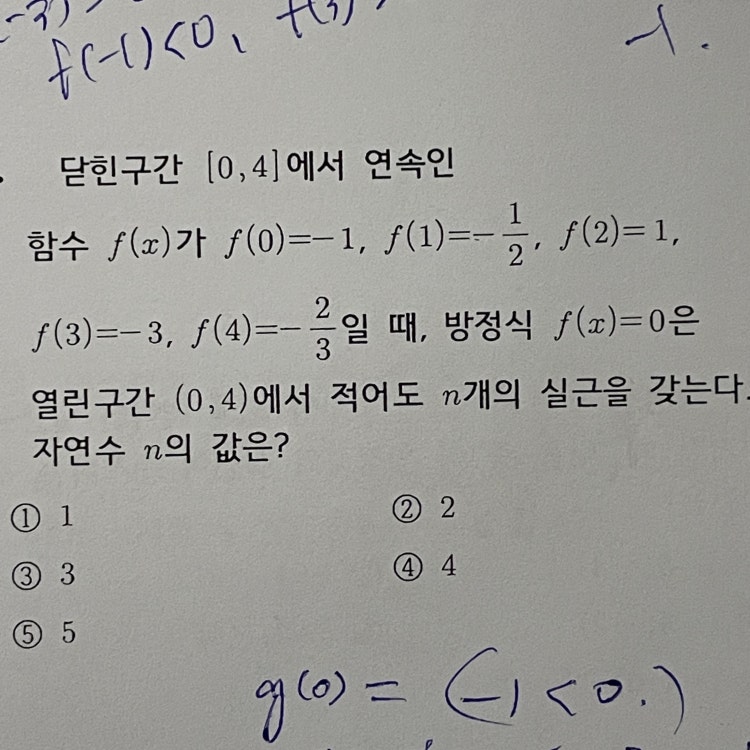 f(-1)<0,
닫힌구간 [0,4]에서 연속인
함수 f(x)가 f(0)=-1, f(1)=-1/2, f(2)=1,
f(3)=-3, f(4)=-2/3일 때, 방정식 f(x)=0은
열린구간 (0,4)에서 적어도 n개의 실근을 갖는다.
자연수 n의 값은?
① 1 ② 2
③ 3 ④ 4
⑤ 5
g(0) = (-1<0.)